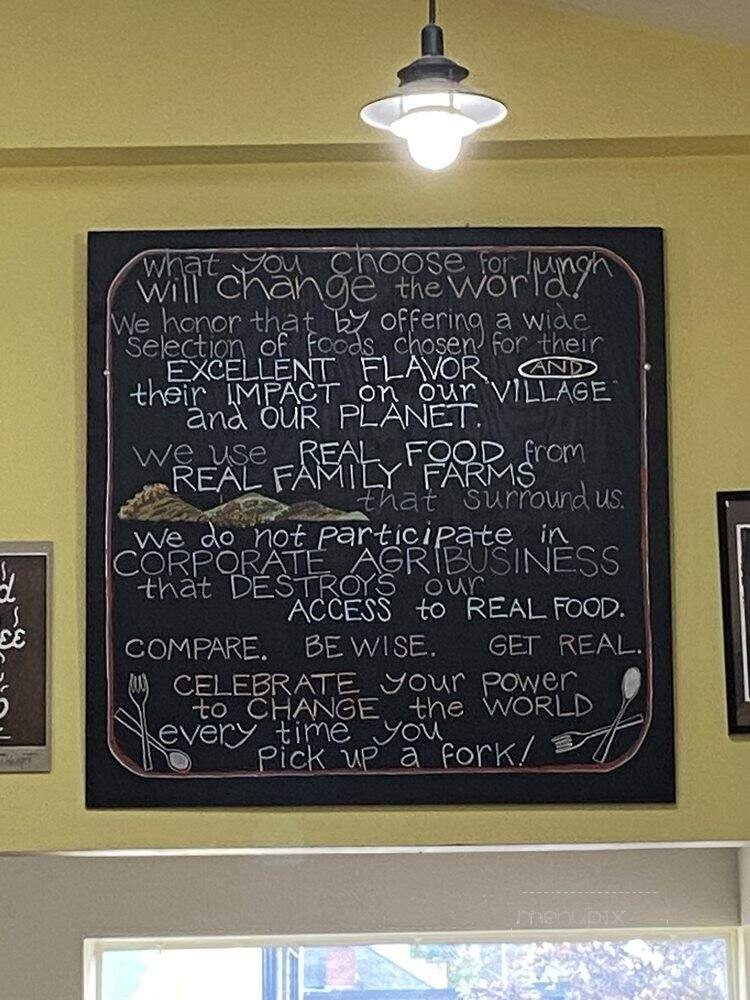 what you choose for lunch
will change the world!
We honor that by offering a wide
selection of foods chosen for their
EXCELLENT FLAVOR AND
their IMPACT on our "VILLAGE"
and OUR PLANET.
we use REAL FOOD from
REAL FAMILY FARMS
that surround us.
we do not participate in
CORPORATE AGRIBUSINESS
that DESTROYS our
ACCESS to REAL FOOD.
COMPARE. BE WISE. GET REAL.
CELEBRATE your power
to CHANGE the WORLD
every time you
Pick up a fork!
menupix